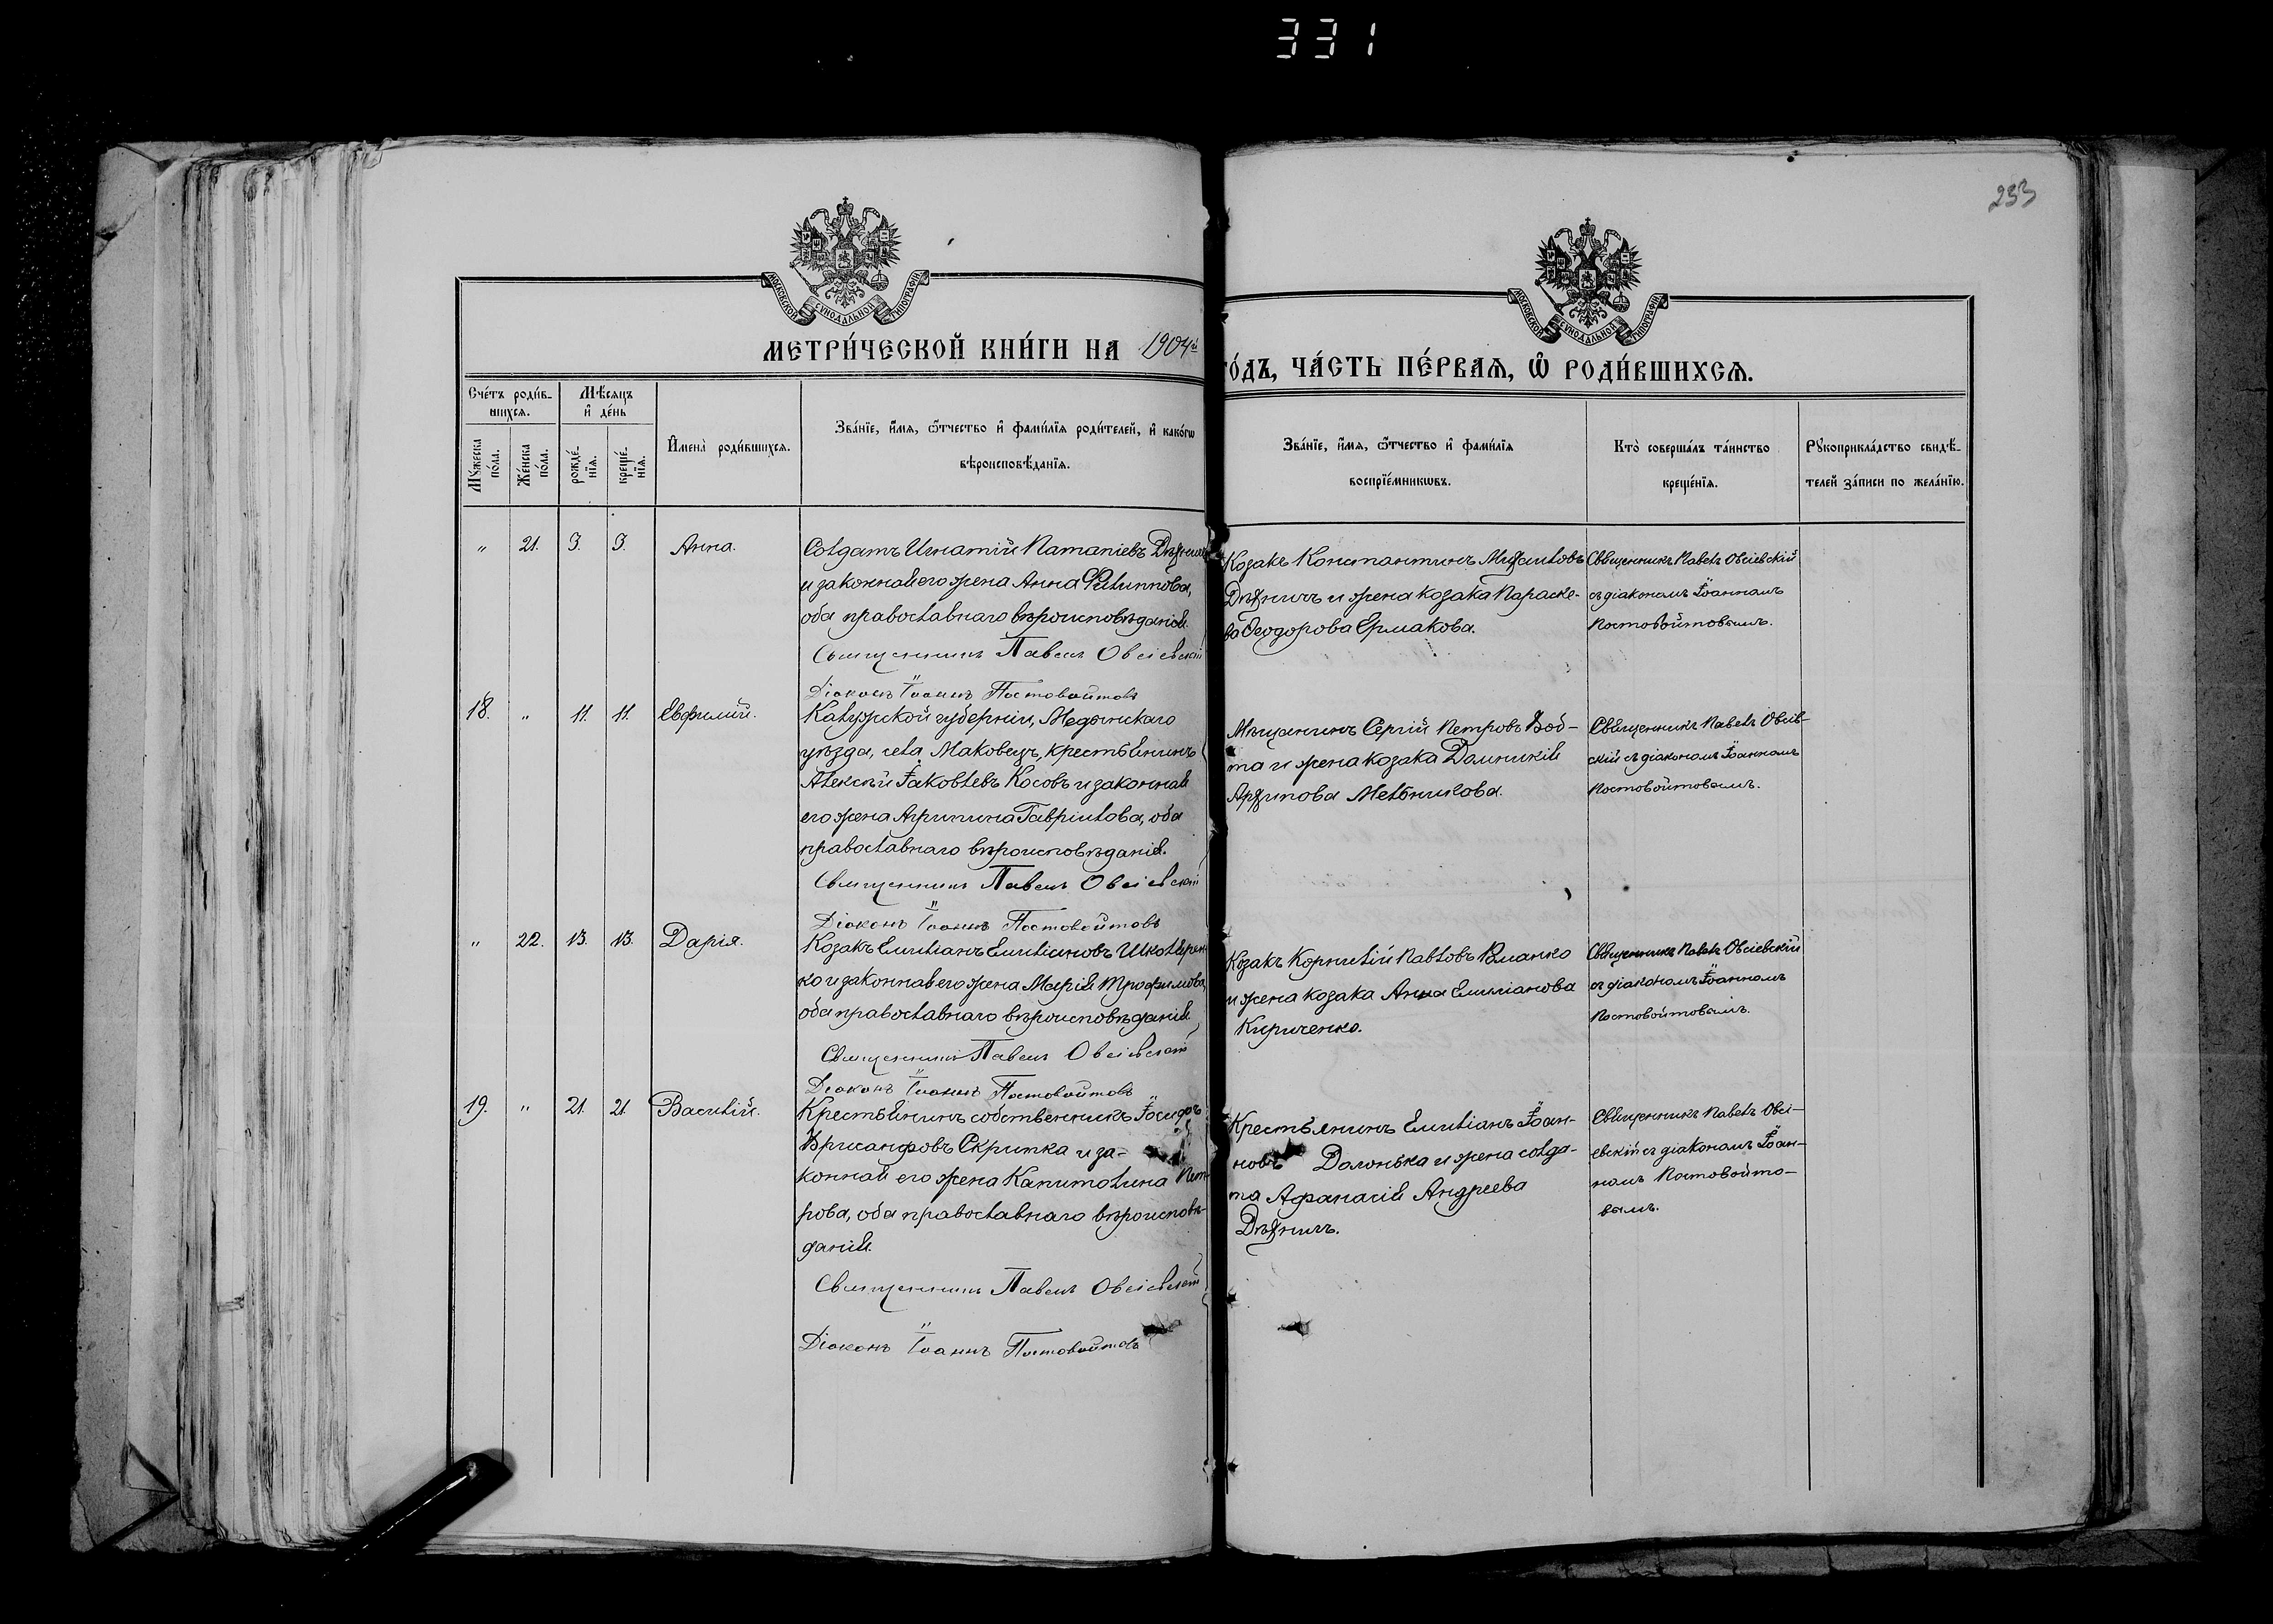 331
233
МОСКОВСКОЙ СУНОДАЛЬНОЙ ТИПОГРАФІИ
МОСКОВСКОЙ СУНОДАЛЬНОЙ ТИПОГРАФІИ
МЕТРИ́ЧЕСКОЙ КНИ́ГИ НА 1904й
ГО́ДЪ, ЧА́СТЬ ПЕ́РВАѦ, Ѽ РОДИ́ВШИХСѦ.
Сче́тъ роди́в-
шихсѧ.
Мѣсѧцъ
и҆ де́нь
Мꙋ́жеска по́ла.
Же́нска по́ла.
рожде́-
нїѧ.
креще́-
нїѧ.
И҆мена̀ роди́вшихсѧ.
Зва́нїе, и҆́мѧ, ѻ҆́тчество и҆ фами́лїѧ роди́телей, и҆ како́гѡ
вѣроисповѣ́данїѧ.
Зва́нїе, и҆́мѧ, ѻ҆́тчество и҆ фами́лїѧ
воспрїе́мникѡвъ.
Кто̀ соверша́лъ та́инство
креще́нїѧ.
Рꙋкоприкла́дство свидѣ́-
телей за́писи по жела́нїю.
„ 21. 9. 9. Анна.
Солдатъ Игнатій Потапіевъ
и законная его жена Анна Филиппова,
оба православнаго вѣроисповѣданія.
Священникъ Павелъ Овсіевскій
Діаконъ Іоаннъ Постовойтовъ
Козакъ Константинъ Михаиловъ
Дѣхничъ и жена козака Параске-
ва Ѳеодорова Ермакова.
Священникъ Павелъ Овсіевскій
съ діакономъ Іоанномъ
Постовойтовымъ.
18. „ 11. 11. Евфимій.
Калужской губерніи, Медынскаго
уѣзда, села Маковецъ, крестьянинъ
Алексѣй Іаковлевъ Косовъ и законная
его жена Агрипина Гавріилова, оба
православнаго вѣроисповѣданія.
Священникъ Павелъ Овсіевскій
Діаконъ Іоаннъ Постовойтовъ
Мѣщанинъ Сергій Петровъ
и жена козака Домникія
Архипова Мельникова.
Священникъ Павелъ Овсіев-
скій съ діакономъ Іоанномъ
Постовойтовымъ.
„ 22. 13. 13. Дарія.
Козакъ Емиліанъ Емиліановъ Школярен-
ко и законная его жена Марія Трофимова,
оба православнаго вѣроисповѣданія.
Священникъ Павелъ Овсіевскій
Діаконъ Іоаннъ Постовойтовъ
Козакъ Корнилій Павловъ
и жена козака Анна Емиліанова
Кириченко.
Священникъ Павелъ Овсіевскій
съ діакономъ Іоанномъ
Постовойтовымъ.
19. „ 21. 21. Василій.
Крестьянинъ собственникъ Ісидоръ
Хрисанфовъ Скрипка и за-
конная его жена Капитолина Пет-
рова, оба православнаго вѣроисповѣ-
данія.
Священникъ Павелъ Овсіевскій
Діаконъ Іоаннъ Постовойтовъ
Крестьянинъ Емиліанъ Іоан-
новъ Долонька и жена солда-
та Афанасія Андреева
Дѣхничъ.
Священникъ Павелъ Овсі-
евскій съ діакономъ Іоан-
номъ Постовойто-
вымъ.